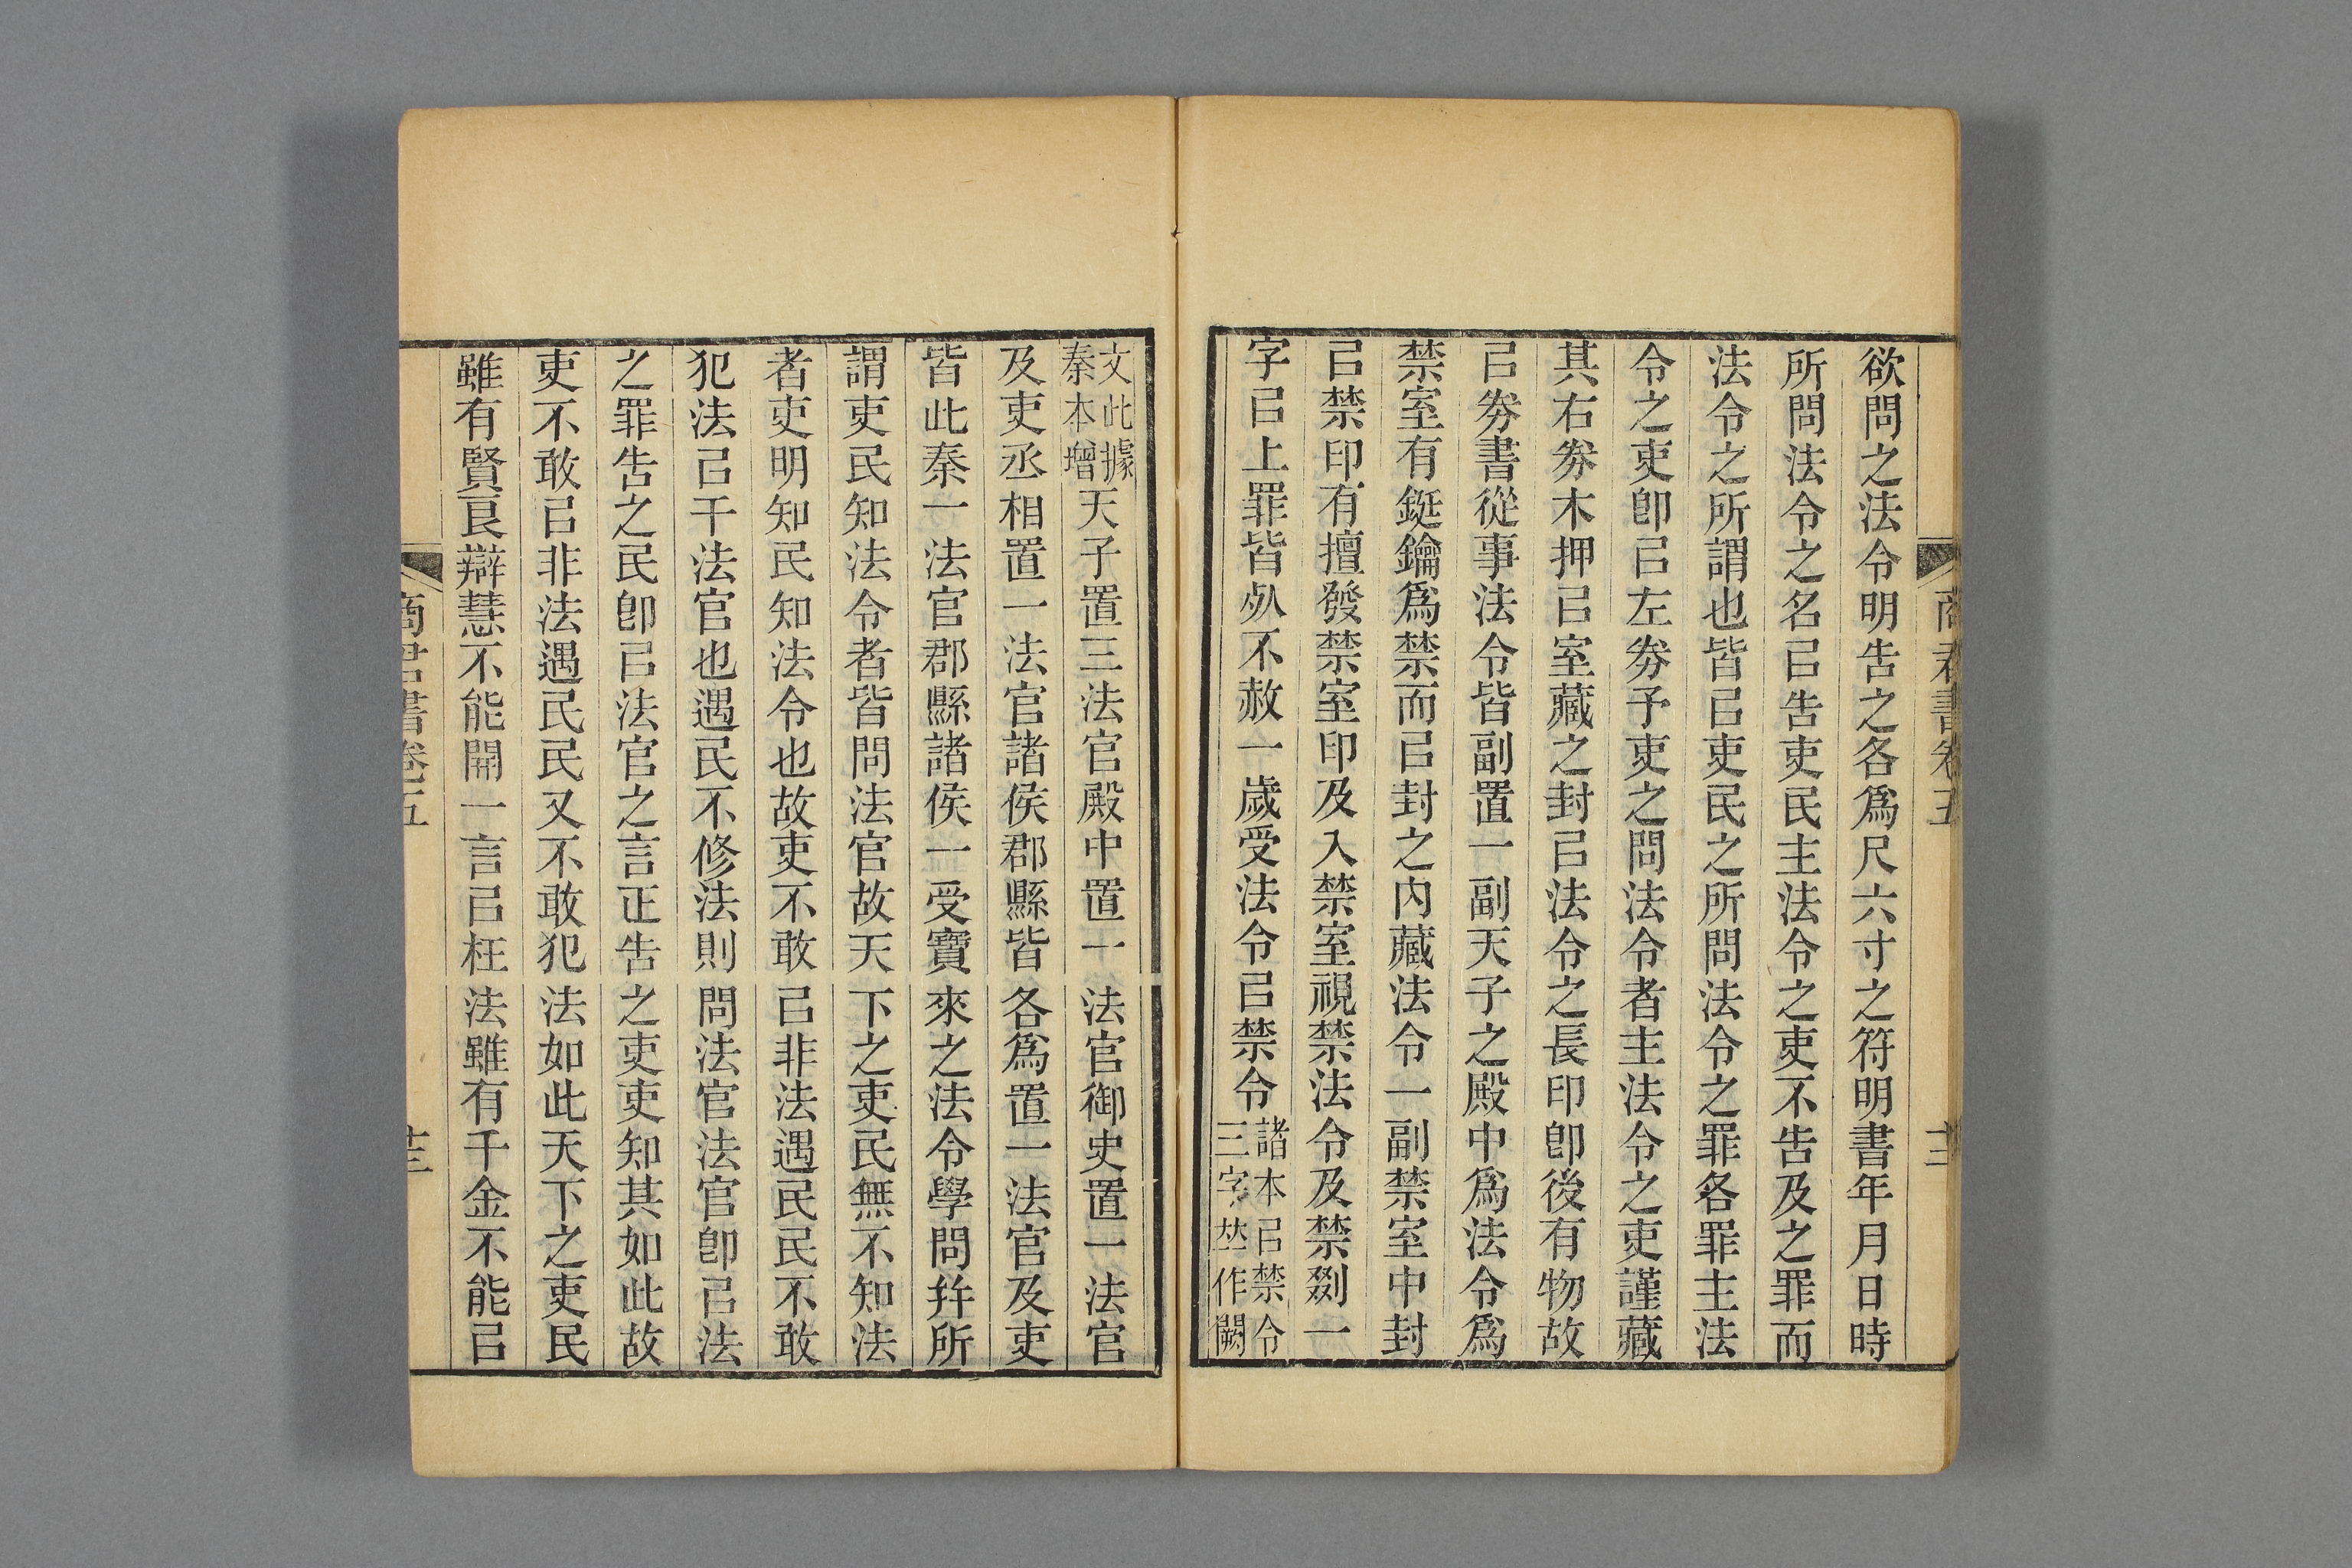 商君書卷五
十二
欲問之法令明吿之各爲尺六寸之符明書年月日時
所問法令之名㠯吿吏民主法令之吏不吿及之罪而
法令之所謂也皆㠯吏民之所問法令之罪各罪主法
令之吏卽㠯左劵予吏之問法令者主法令之吏謹藏
其右劵木押㠯室藏之封㠯法令之長印卽後有物故
㠯劵書從事法令皆副置一副天子之殿中爲法令爲
禁室有鋌鑰爲禁而㠯封之内藏法令一副禁室中封
㠯禁印有擅發禁室印及入禁室視禁法令及禁剟一
字㠯上罪皆𣦸不赦一歲受法令㠯禁令
諸本㠯禁令
三字𠀤作闕
文此據
秦本增
天子置三法官殿中置一法官御史置一法官
及吏丞相置一法官諸侯郡縣皆各爲置一法官及吏
皆此秦一法官郡縣諸侯一受寶來之法令學問幷所
謂吏民知法令者皆問法官故天下之吏民無不知法
者吏明知民知法令也故吏不敢㠯非法遇民民不敢
犯法㠯干法官也遇民不修法則問法官法官卽㠯法
之罪吿之民卽㠯法官之言正吿之吏吏知其如此故
吏不敢㠯非法遇民民又不敢犯法如此天下之吏民
雖有賢良辯慧不能開一言㠯枉法雖有千金不能㠯
商君書卷五
十三